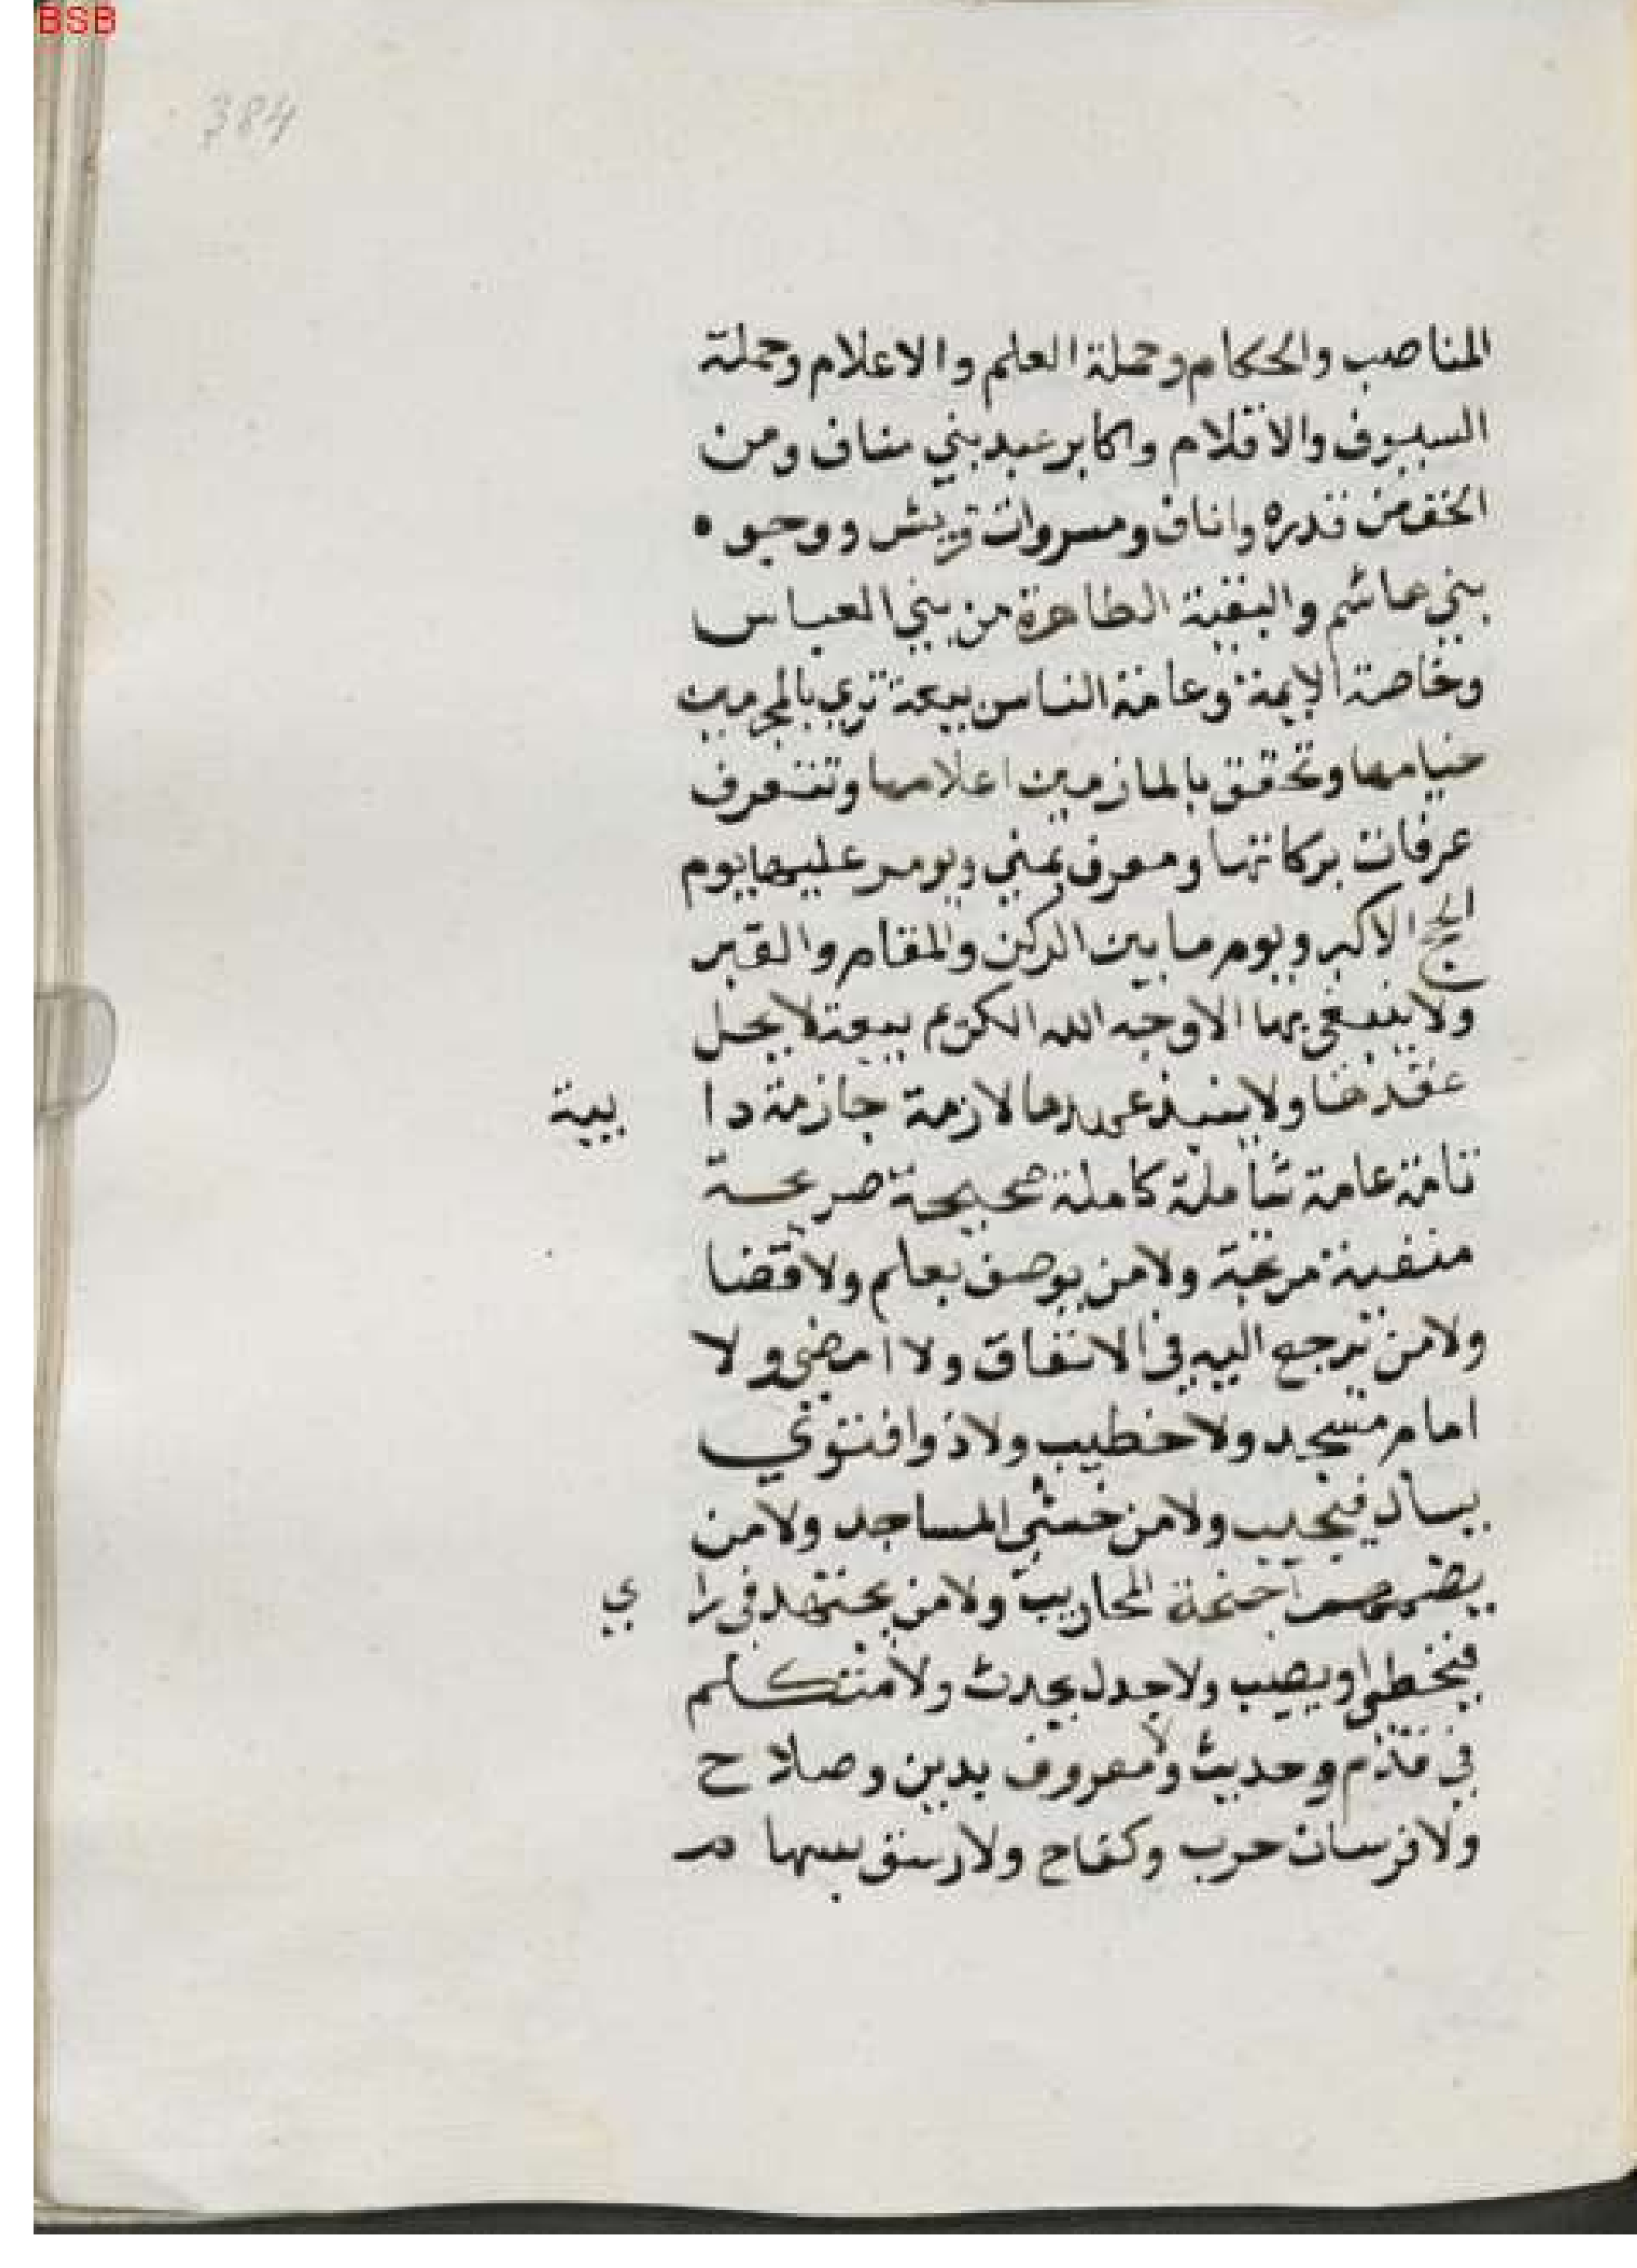 BSB
384
المناصب والحكام وحملة العلم والاعلام وحملة
السيوف والاقلام واكابر عبد بني مناف ومن
انخفض قدره واناف ومسروات قريش ووجوه
بني هاشم والبقية الطاهرة من بني العباس
وخاصة الايمة وعامة الناس بيعة تري بالحرمين
خيامها وتخفق بالمازمين اعلامها وتتعرف
عرفات بركاتها ومعرف بمني ويومر عليها يوم
الحج الاكبر ويوم ما بين الركن والمقام والقبر
ولا ينبغي بها الا وجه الله الكريم بيعة لا يحل
عقدها ولا ينبذ عهدها لازمة جازمة دا يبية
تامة عامة شاملة كاملة صحيحة صريحة
متعبة مريحة ولا من يوصف بعلم ولا قضا
ولا من ترجع اليه في الاتفاق ولا امضي ولا
امام مسجد ولا خطيب ولا ذوا فتوي
يسال فيجيب ولا من خشي المساجد ولا من
اجنحة المحاريب ولا من يجتهد في را ي
فيخطي او يصيب ولا جدل يحدث ولا متكلم
في قديم وحديث ولا معروف بدين وصلاح
ولا فرسان حرب وكفاح ولا رشق بسها مر